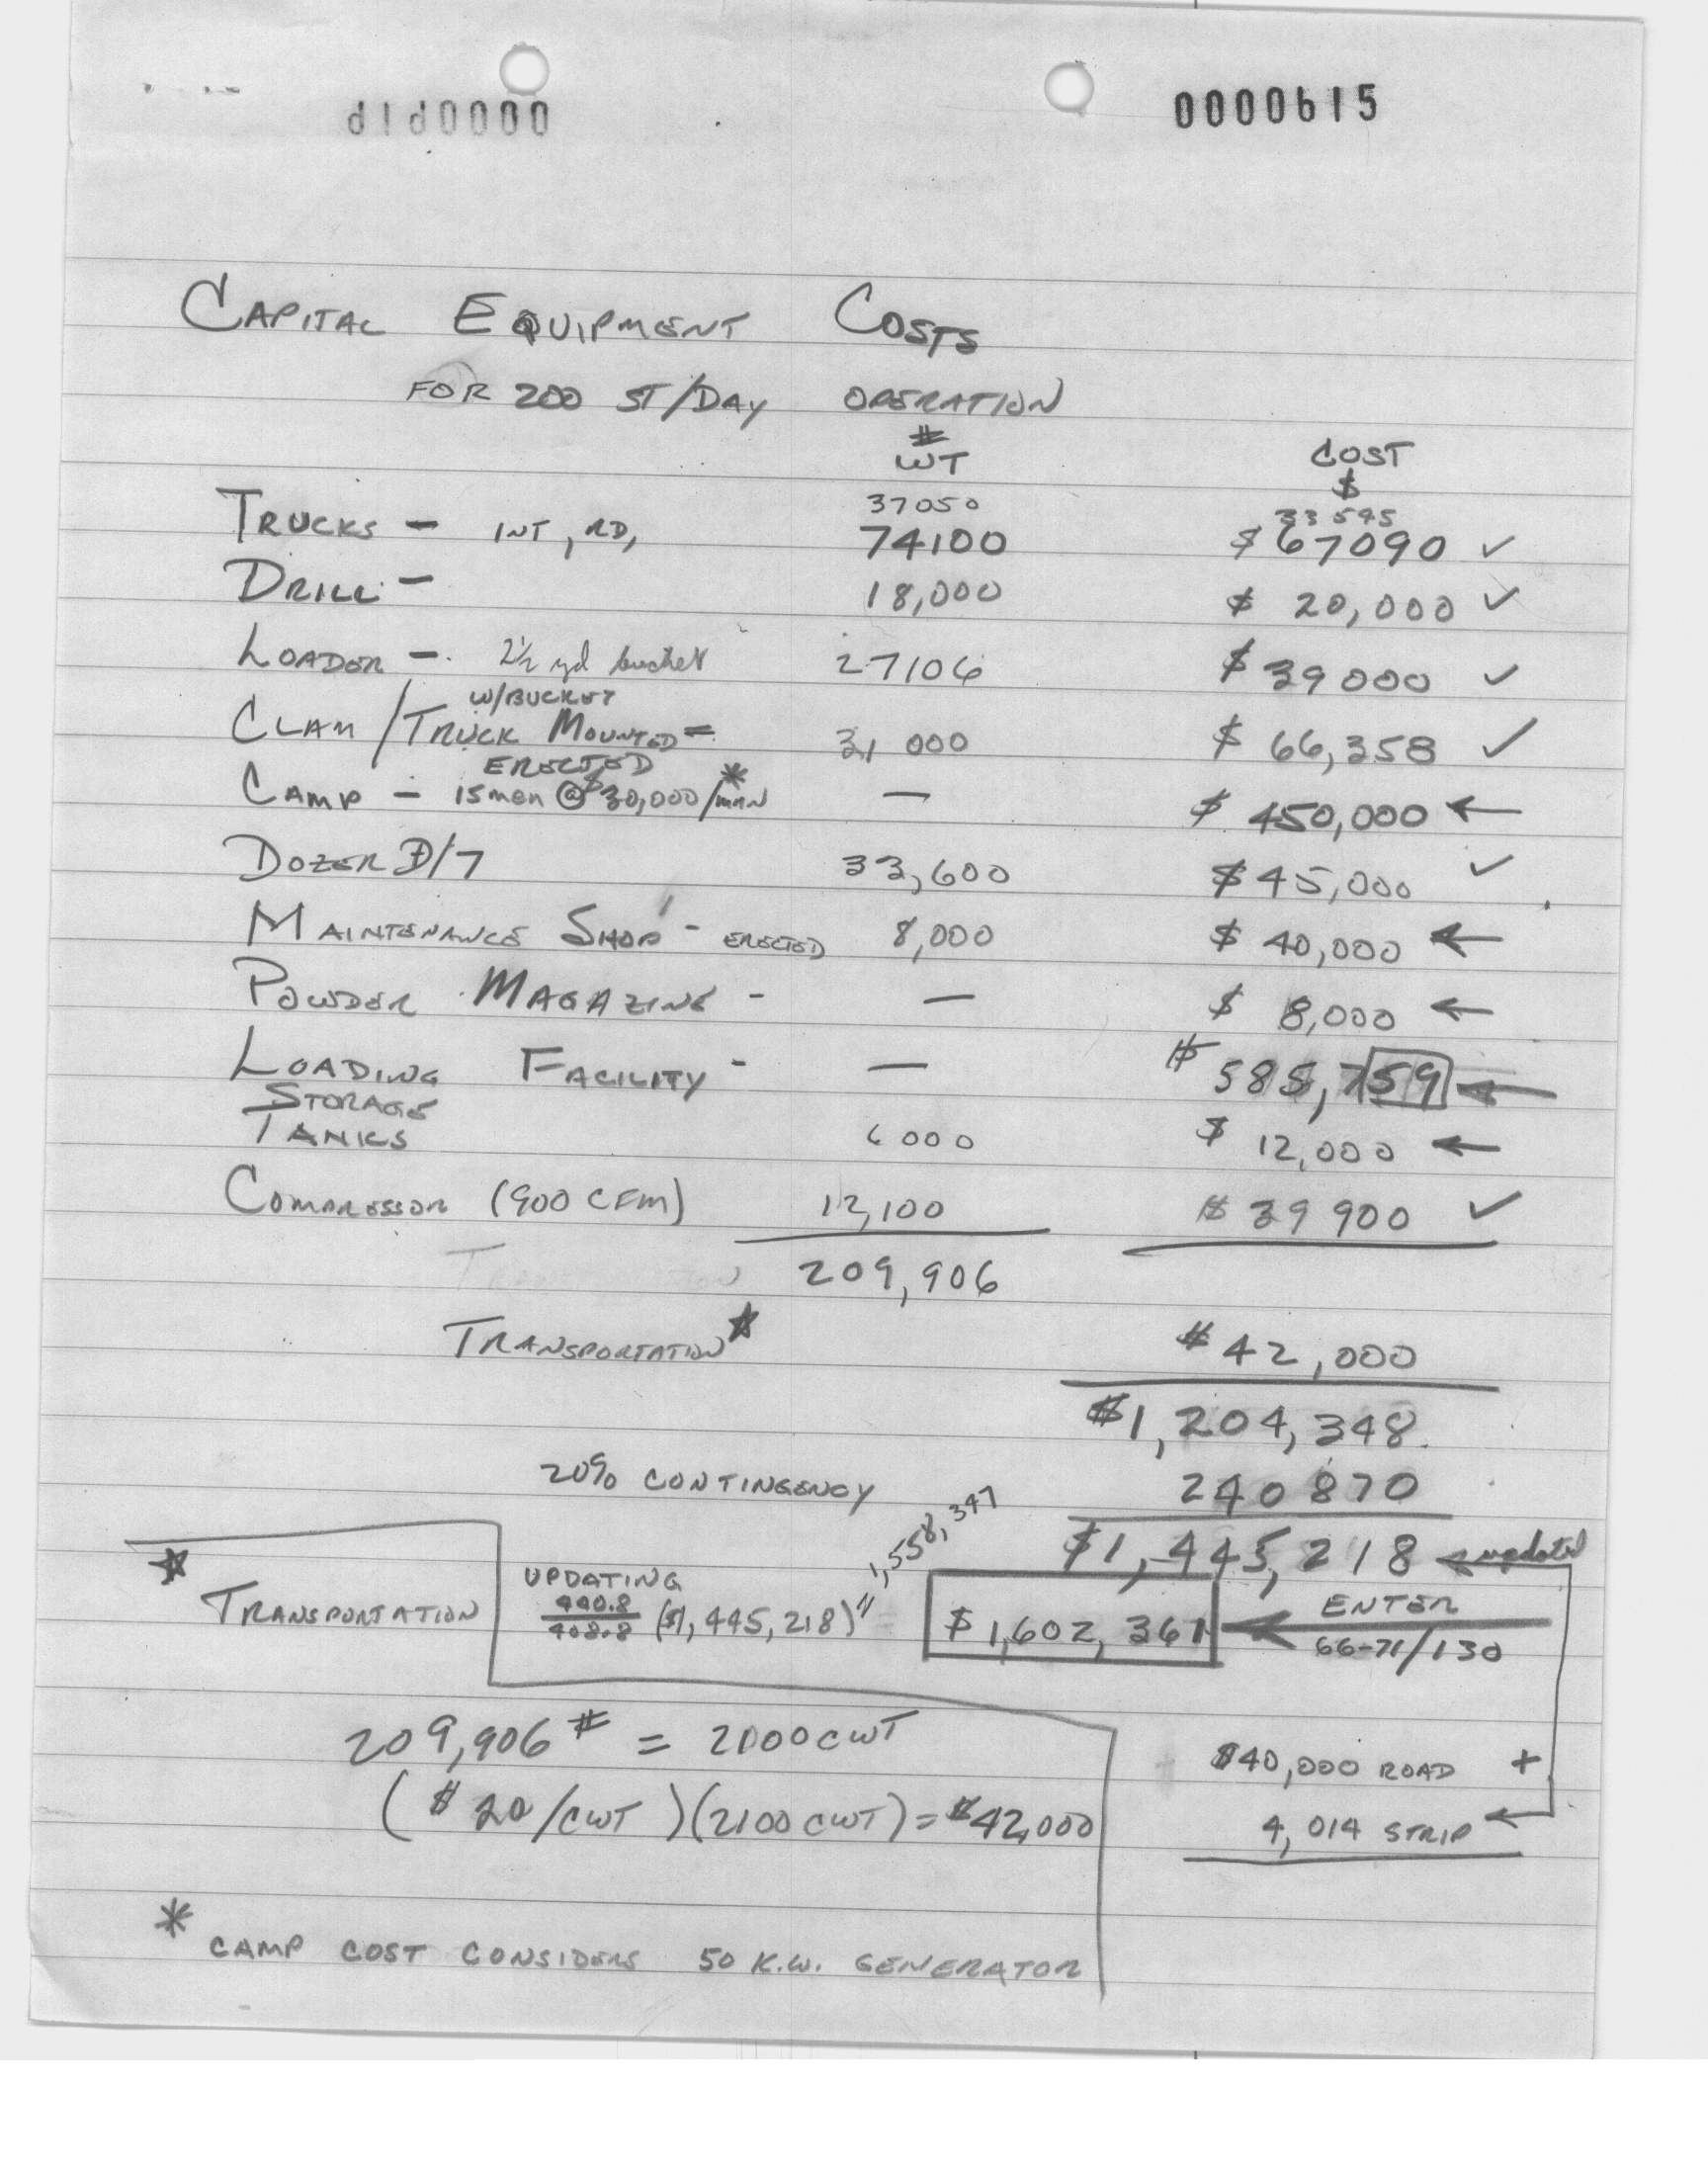 0000615
CAPITAL EQUIPMENT COSTS
FOR 200 ST/DAY OPERATION
# WT COST $
37050 33545
TRUCKS - INT, RD, 74100 $67090 ✓
DRILL - 18,000 $ 20,000 ✓
LOADER - 2½ yd bucket 27106 $ 39000 ✓
W/BUCKET
CLAM/TRUCK MOUNTED - 31 000 $ 66,358 ✓
ERECTED
CAMP - 15 men @ $30,000/man * — $ 450,000 ←
DOZER D/7 33,600 $45,000 ✓
MAINTENANCE SHOP - ERECTED 8,000 $ 40,000 ←
POWDER MAGAZINE - — $ 8,000 ←
LOADING FACILITY - — $ 585,759 ←
STORAGE
TANKS 6000 $ 12,000 ←
COMPRESSOR (900 CFM) 12,100 $ 39 900 ✓
209,906
TRANSPORTATION ☆ $ 42,000
$1,204,348.
20% CONTINGENCY 240870
$1,445,218 ← updated
☆ TRANSPORTATION
UPDATING
440.8/408.8 ($1,445,218) = 1,558,347
$1,602,361 ← ENTER
66-71/130
209,906 # = 2100 CWT
($ 20/CWT)(2100 CWT) = $42,000
$40,000 ROAD +
4,014 STRIP ←
* CAMP COST CONSIDERS 50 K.W. GENERATOR